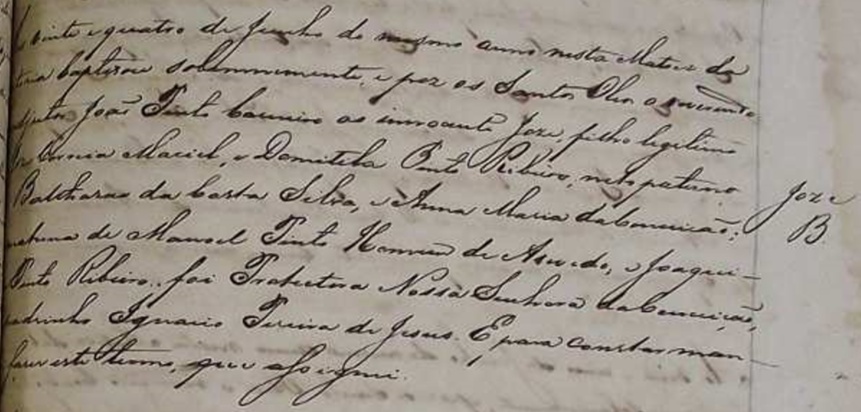 vinte e quatro de Junho do mesmo anno nesta Matriz do
baptisou solemnemente, e poz os Santos Oleos o reverendo
João Pinto Carneiro ao innocente Joze, filho legitimo
Correia Maciel, e Domitila Pinto Ribeiro, neto paterno
Joze
Balthazar da Costa Silva, e Anna Maria da Conceição;
B
materno de Manoel Pinto Homem de Asevedo, e Joaqui-
Pinto Ribeiro, foi Protectora Nossa Senhora da Conceição,
padrinho Ignacio Pereira de Jesus. E para constar man-
fazer este termo, que assignei.